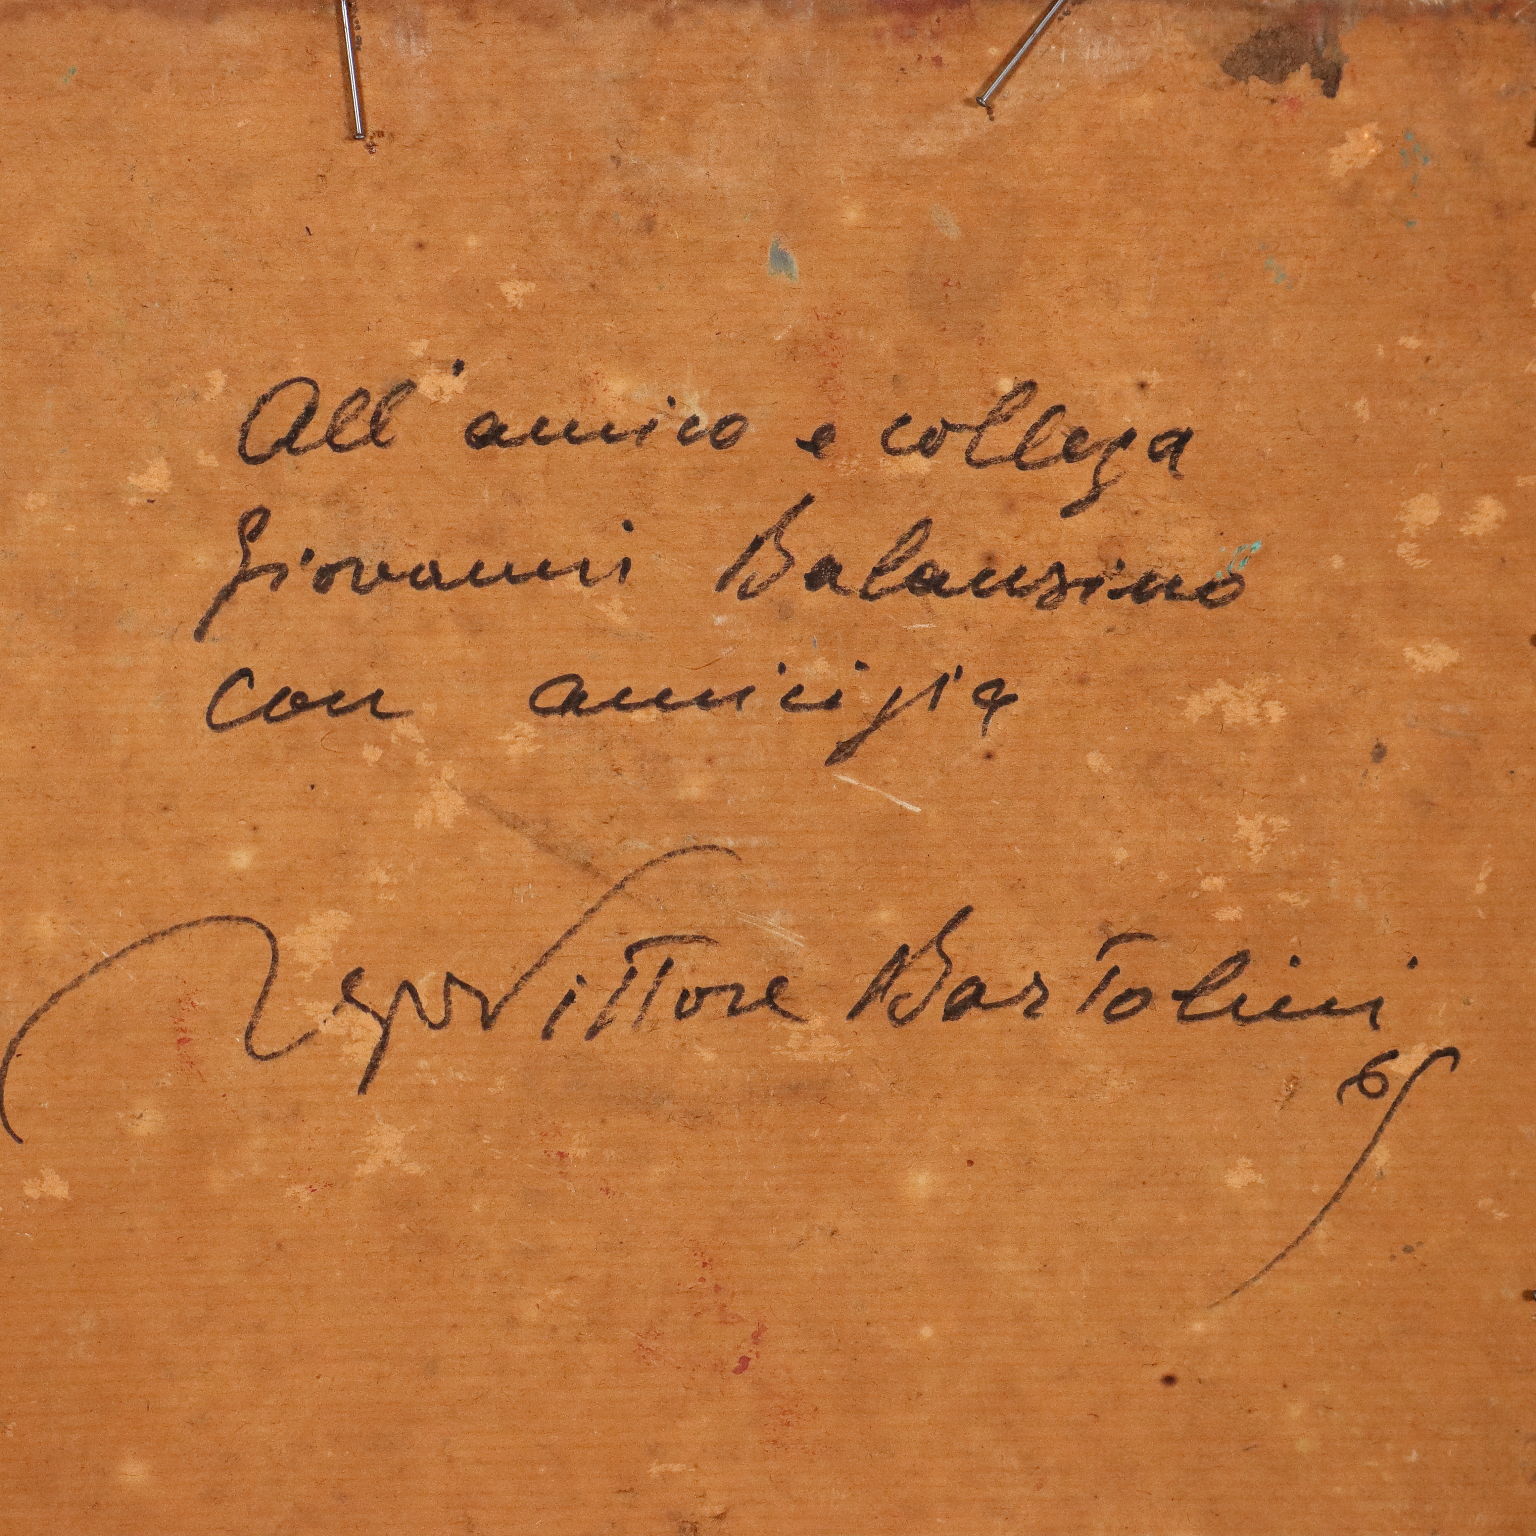 All'amico e collega
Giovanni Balansino
con amicizia
Vittore Bartolini
65